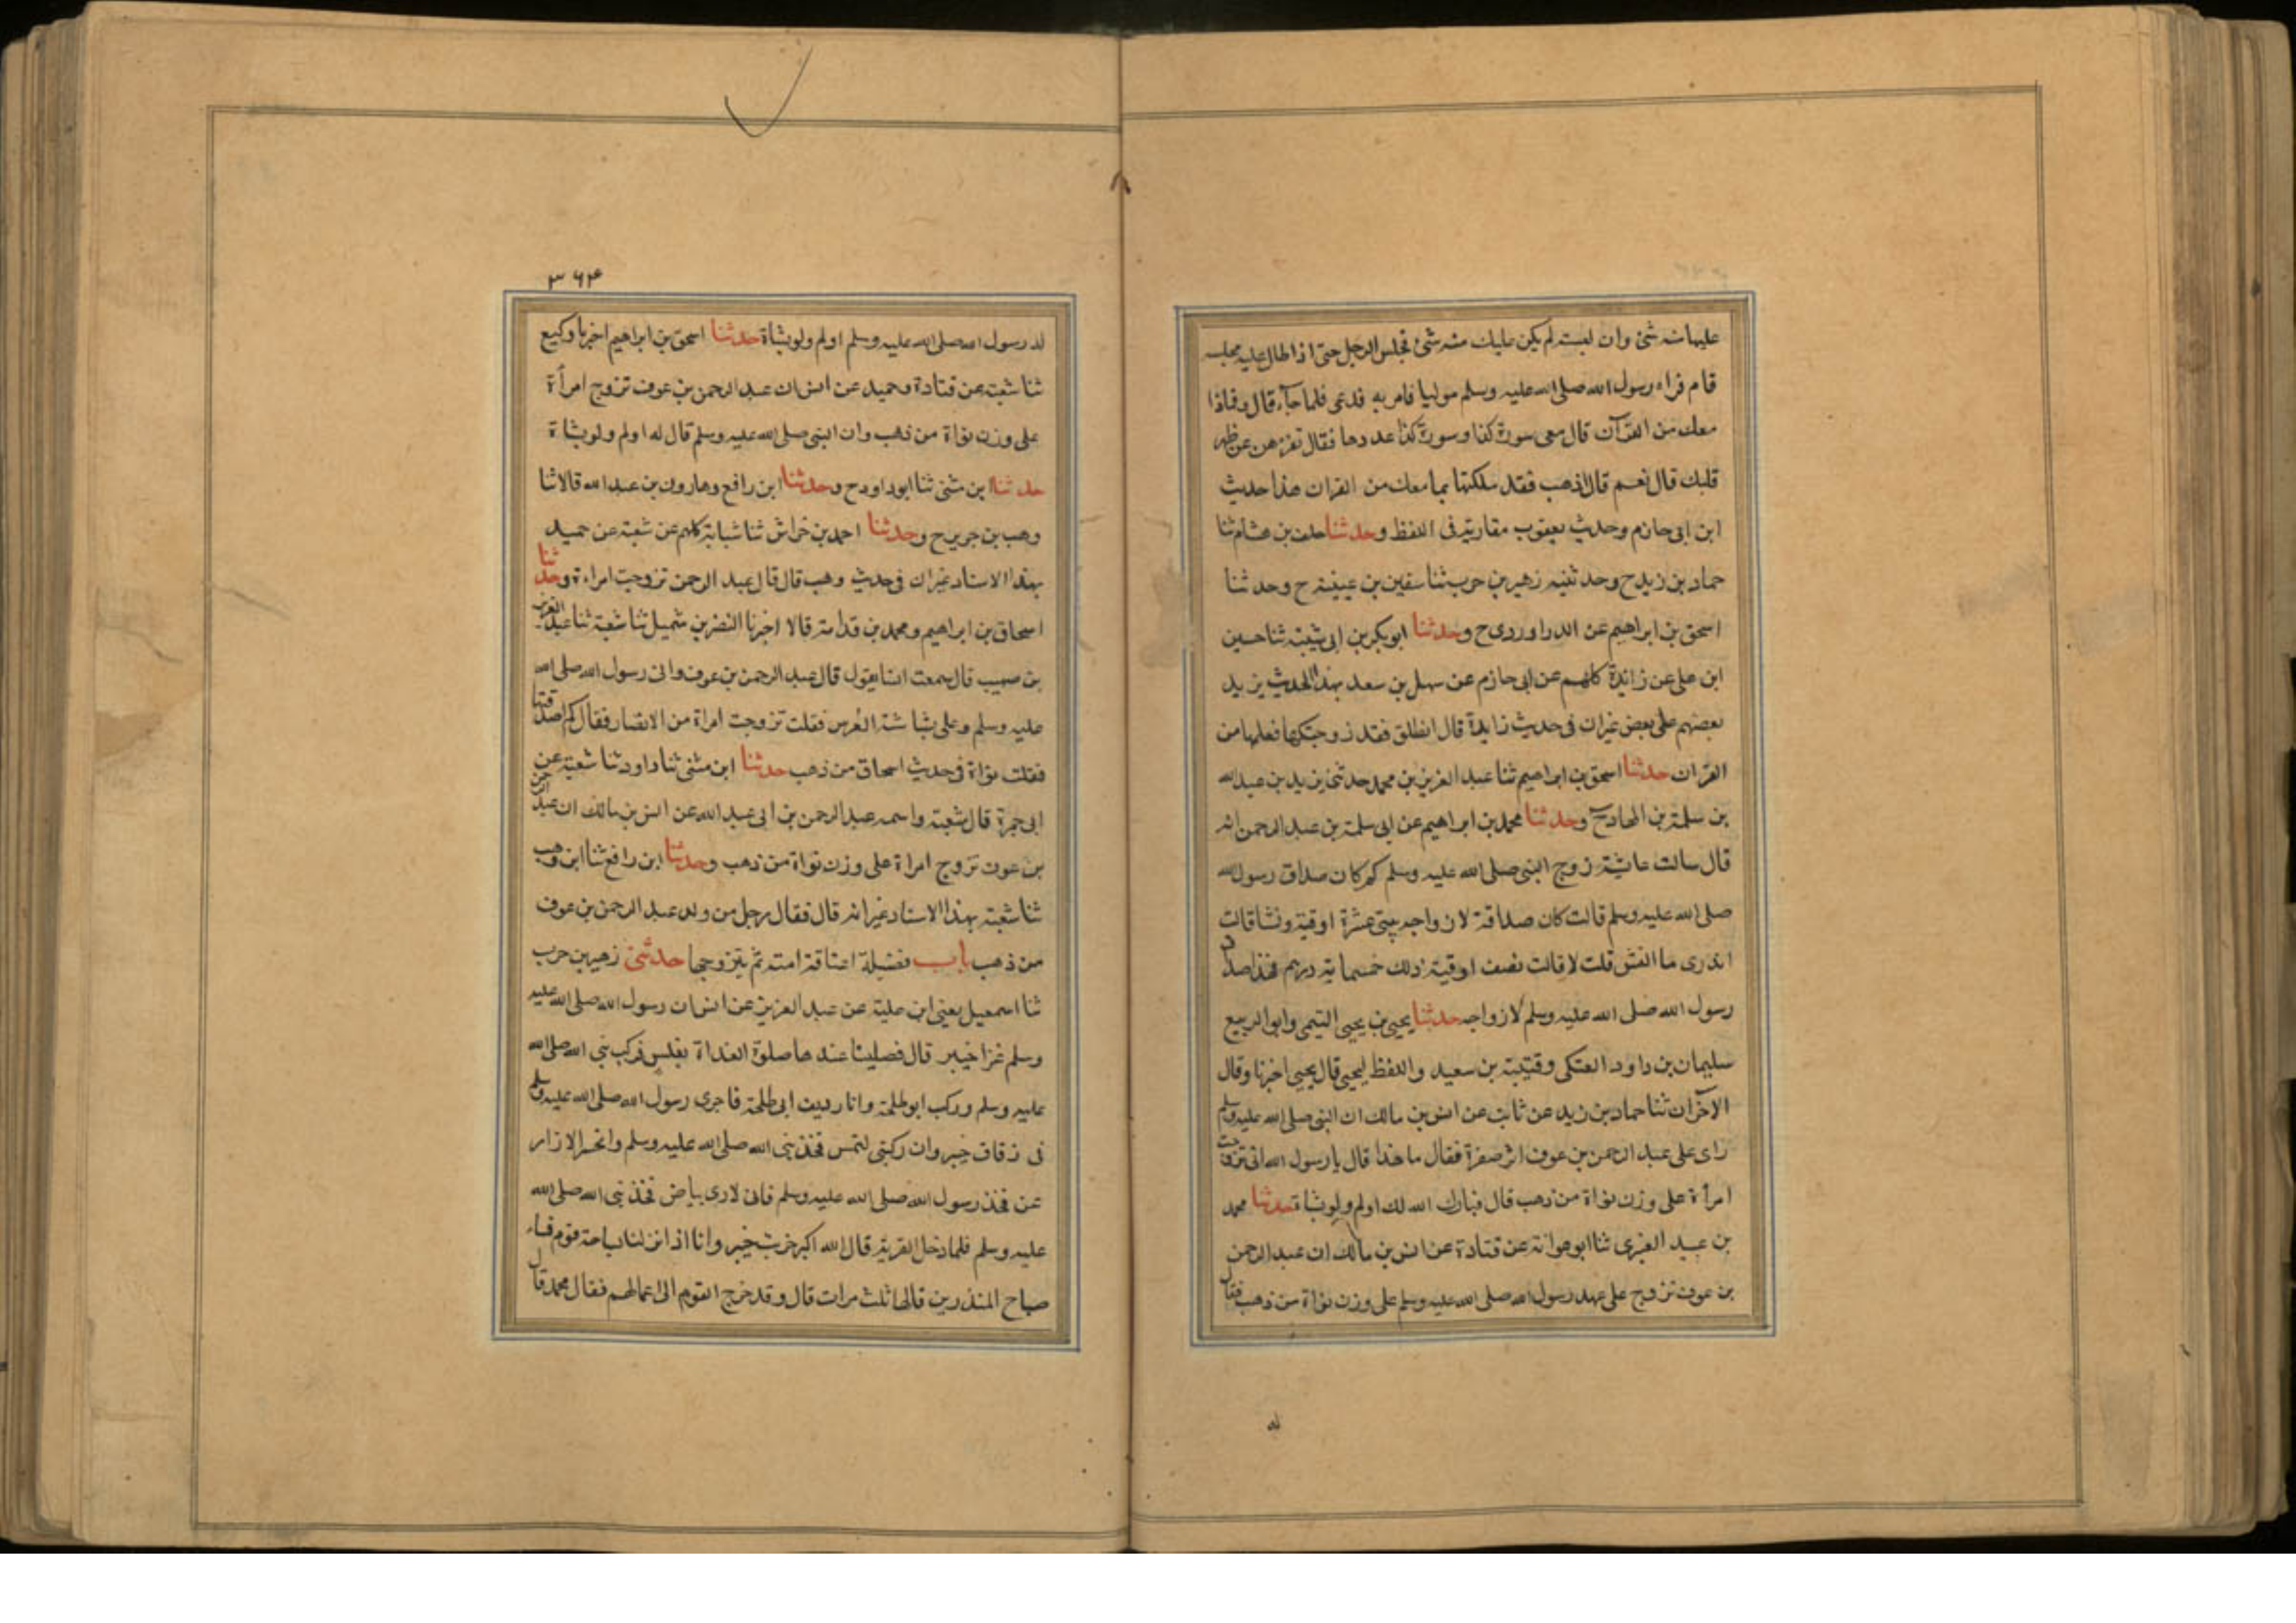 عليها منه شئ وان لبسته لم يكن عليك منه شئ فجلس الرجل حتى اذا طال عليه مجلسه
قام فراه رسول الله صلى الله عليه وسلم موليا فامر به فدعى فلما جآء قال و ماذا
معك من القرآن قال معى سورة كذا وسورة كذا عددها فقال تقرءهن عن ظهر
قلبك قال نعم قال اذهب فقد ملكتها بما معك من القران هذا حديث
ابن ابى حازم وحديث يعقوب مقاربة فى اللفظ وحدثنا خلف بن هشام ثنا
حماد بن زيد ح وحدثنيه زهير بن حرب ثنا سفين بن عيينة ح وحدثنا
اسحق بن ابراهيم عن الدراوردى ح وحدثنا ابو بكر بن ابى شيبة ثنا حسين
ابن على عن زائدة كلهم عن ابى حازم عن سهل بن سعد بهذا الحديث يزيد
بعضهم على بعض غير ان فى حديث زايدة قال انطلق فقد زوجتكها فعلمها من
القران حدثنا اسحق بن ابراهيم ثنا عبد العزيز بن محمد حدثنى يزيد بن عبد الله
بن سلمة بن الهاد ح وحدثنا محمد بن ابراهيم عن ابى سلمة بن عبد الرحمن انه
قال سالت عايشة زوج النبى صلى الله عليه وسلم كم كان صداق رسول الله
صلى الله عليه وسلم قالت كان صداقة لازواجه ثنتى عشرة اوقية ونشا قات
اتدرى ما النش قلت لا قالت نصف اوقية ذلك خمسماية درهم فهذا صداق
رسول الله صلى الله عليه وسلم لازواجه حدثنا يحيى بن يحيى التيمى وابو الربيع
سليمان بن داود العتكى وقتيبة بن سعيد واللفظ ليحيى قال يحيى اخبرنا وقال
الاخران ثنا حماد بن زيد عن ثابت عن انس بن مالك ان النبى صلى الله عليه وسلم
راى على عبد الرحمن بن عوف اثر صفرة فقال ما هذا قال يا رسول الله انى تزوجت
امرأة على وزن نواة من ذهب قال فبارك الله لك اولم ولو بشاة حدثنا محمد
بن عبيد الغبرى ثنا ابو عوانة عن قتادة عن انس بن مالك ان عبد الرحمن
بن عوف تزوج على عهد رسول الله صلى الله عليه وسلم على وزن نواة من ذهب فقال
له
٣٦٤
له رسول الله صلى الله عليه وسلم اولم ولو بشاة حدثنا اسحق بن ابراهيم اخبرنا وكيع
ثنا شعبة عن قتادة وحميد عن انس ان عبد الرحمن بن عوف تزوج امرأة
على وزن نواة من ذهب وان النبى صلى الله عليه وسلم قال له اولم ولو بشاة
حدثنا ابن مثنى ثنا ابو داود ح وحدثنا ابن رافع وهارون بن عبد الله قالا ثنا
وهب بن جرير ح وحدثنا احمد بن خراش ثنا شبابة كلهم عن شعبة عن حميد
بهذا الاسناد غير ان فى حديث وهب قال قال عبد الرحمن تزوجت امراءة وحدثنا
اسحاق بن ابراهيم ومحمد بن قدامة قالا اخبرنا النضر بن شميل ثنا شعبة ثنا عبد العزيز
بن صهيب قال سمعت انسا يقول قال عبد الرحمن بن عوف رانى رسول الله صلى الله
عليه وسلم وعلى بشاشة العرس فقلت تزوجت امراة من الانصار فقال كم اصدقتها
فقلت نواة فى حديث اسحاق من ذهب حدثنا ابن مثنى ثنا داود ثنا شعبة عن
ابى حمزة قال شعبة واسمه عبد الرحمن بن ابى عبد الله عن انس بن مالك ان عبد الرحمن
بن عوف تزوج امراة على وزن نواة من ذهب وحدثنا ابن رافع ثنا ابن وهب
ثنا شعبة بهذا الاسناد غير انه قال فقال رجل من ولد عبد الرحمن بن عوف
من ذهب باب فضيلة اعتاقة امته ثم يتزوجها حدثنى زهير بن حرب
ثنا اسمعيل يعنى ابن علية عن عبد العزيز عن انس ان رسول الله صلى الله عليه
وسلم غزا خيبر قال فصلينا عندها صلوة الغداة بغلس فركب نبى الله صلى الله
عليه وسلم وركب ابو طلحة وانا رديف ابى طلحة فاجرى رسول الله صلى الله عليه وسلم
فى زقاق خيبر وان ركبتى لتمس فخذ نبى الله صلى الله عليه وسلم وانحسر الازار
عن فخذ رسول الله صلى الله عليه وسلم فانى لارى بياض فخذ نبى الله صلى الله
عليه وسلم فلما دخل القرية قال الله اكبر خربت خيبر وانا اذا نزلنا بساحة قوم فساء
صباح المنذرين قالها ثلث مرات قال وقد خرج القوم الى اعمالهم فقال محمد قال